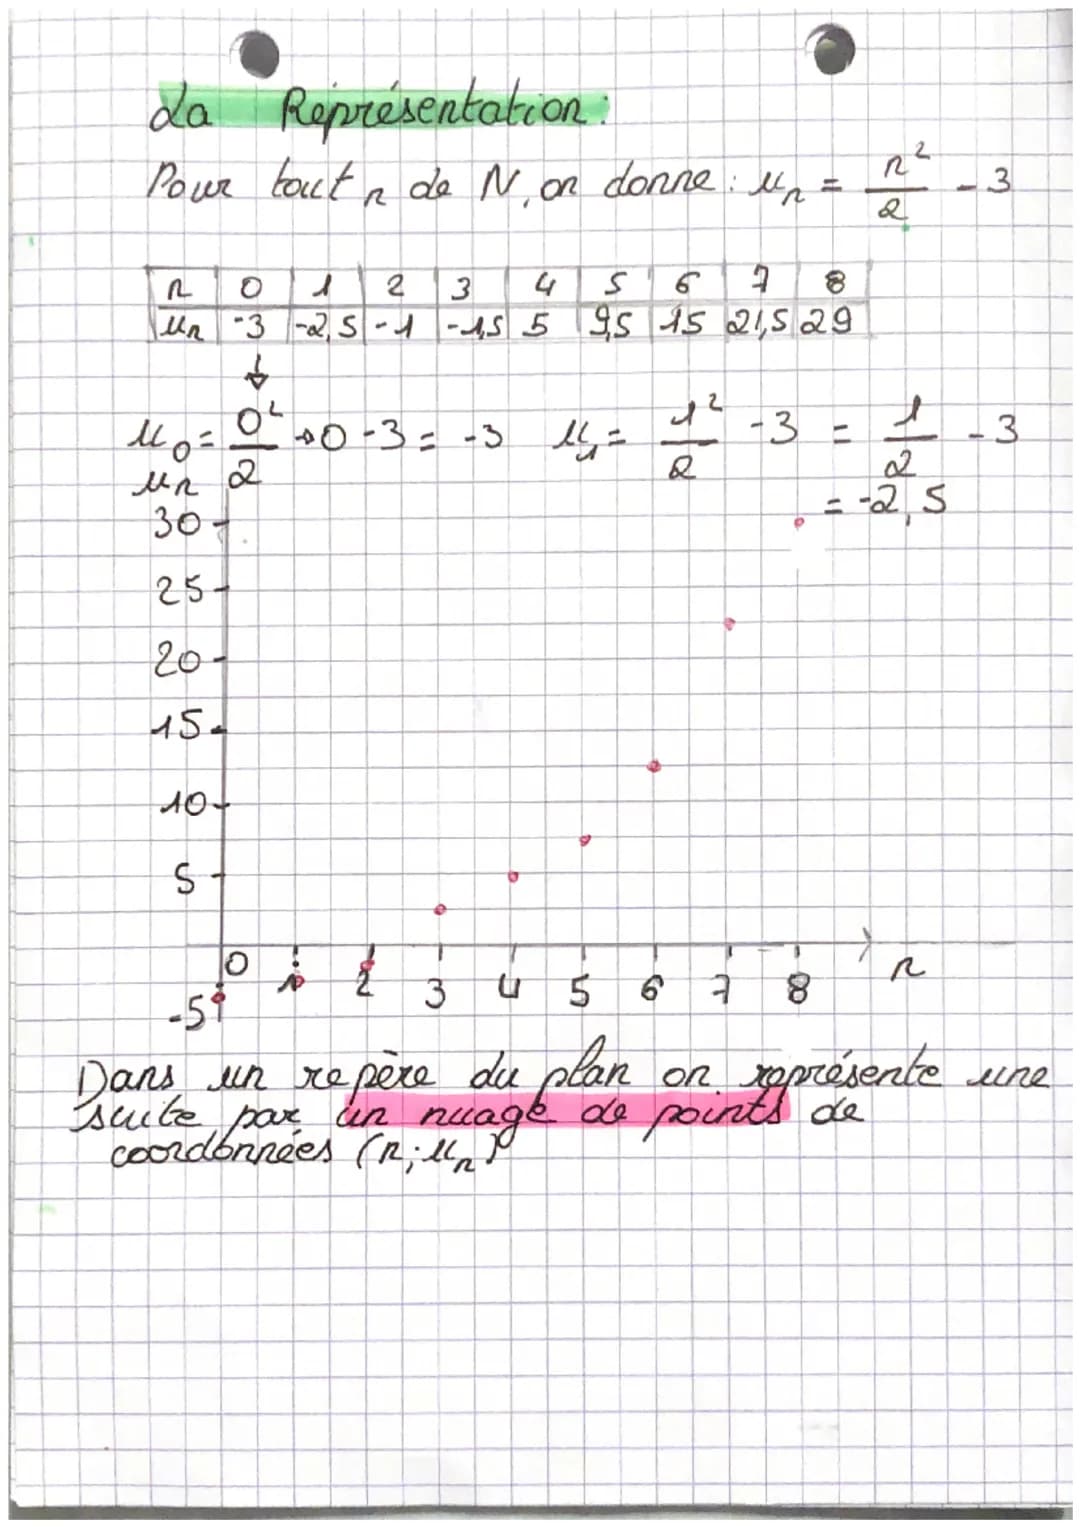 La Représentation:
Pour tout n de N, on donne: un = n²/2 - 3
n 0 1 2 3 4 5 6 7 8
un -3 -2,5 -1 -1,5 5 9,5 15 21,5 29
↓
u0 = 0²/2 → 0 - 3 = -3 u1 = 1²/2 - 3 = 1/2 - 3
= -2,5
un
30
25
20
15
10
5
0 1 2 3 4 5 6 7 8 n
-5
Dans un repère du plan on représente une
suite par un nuage de points de
coordonnées (n; un)